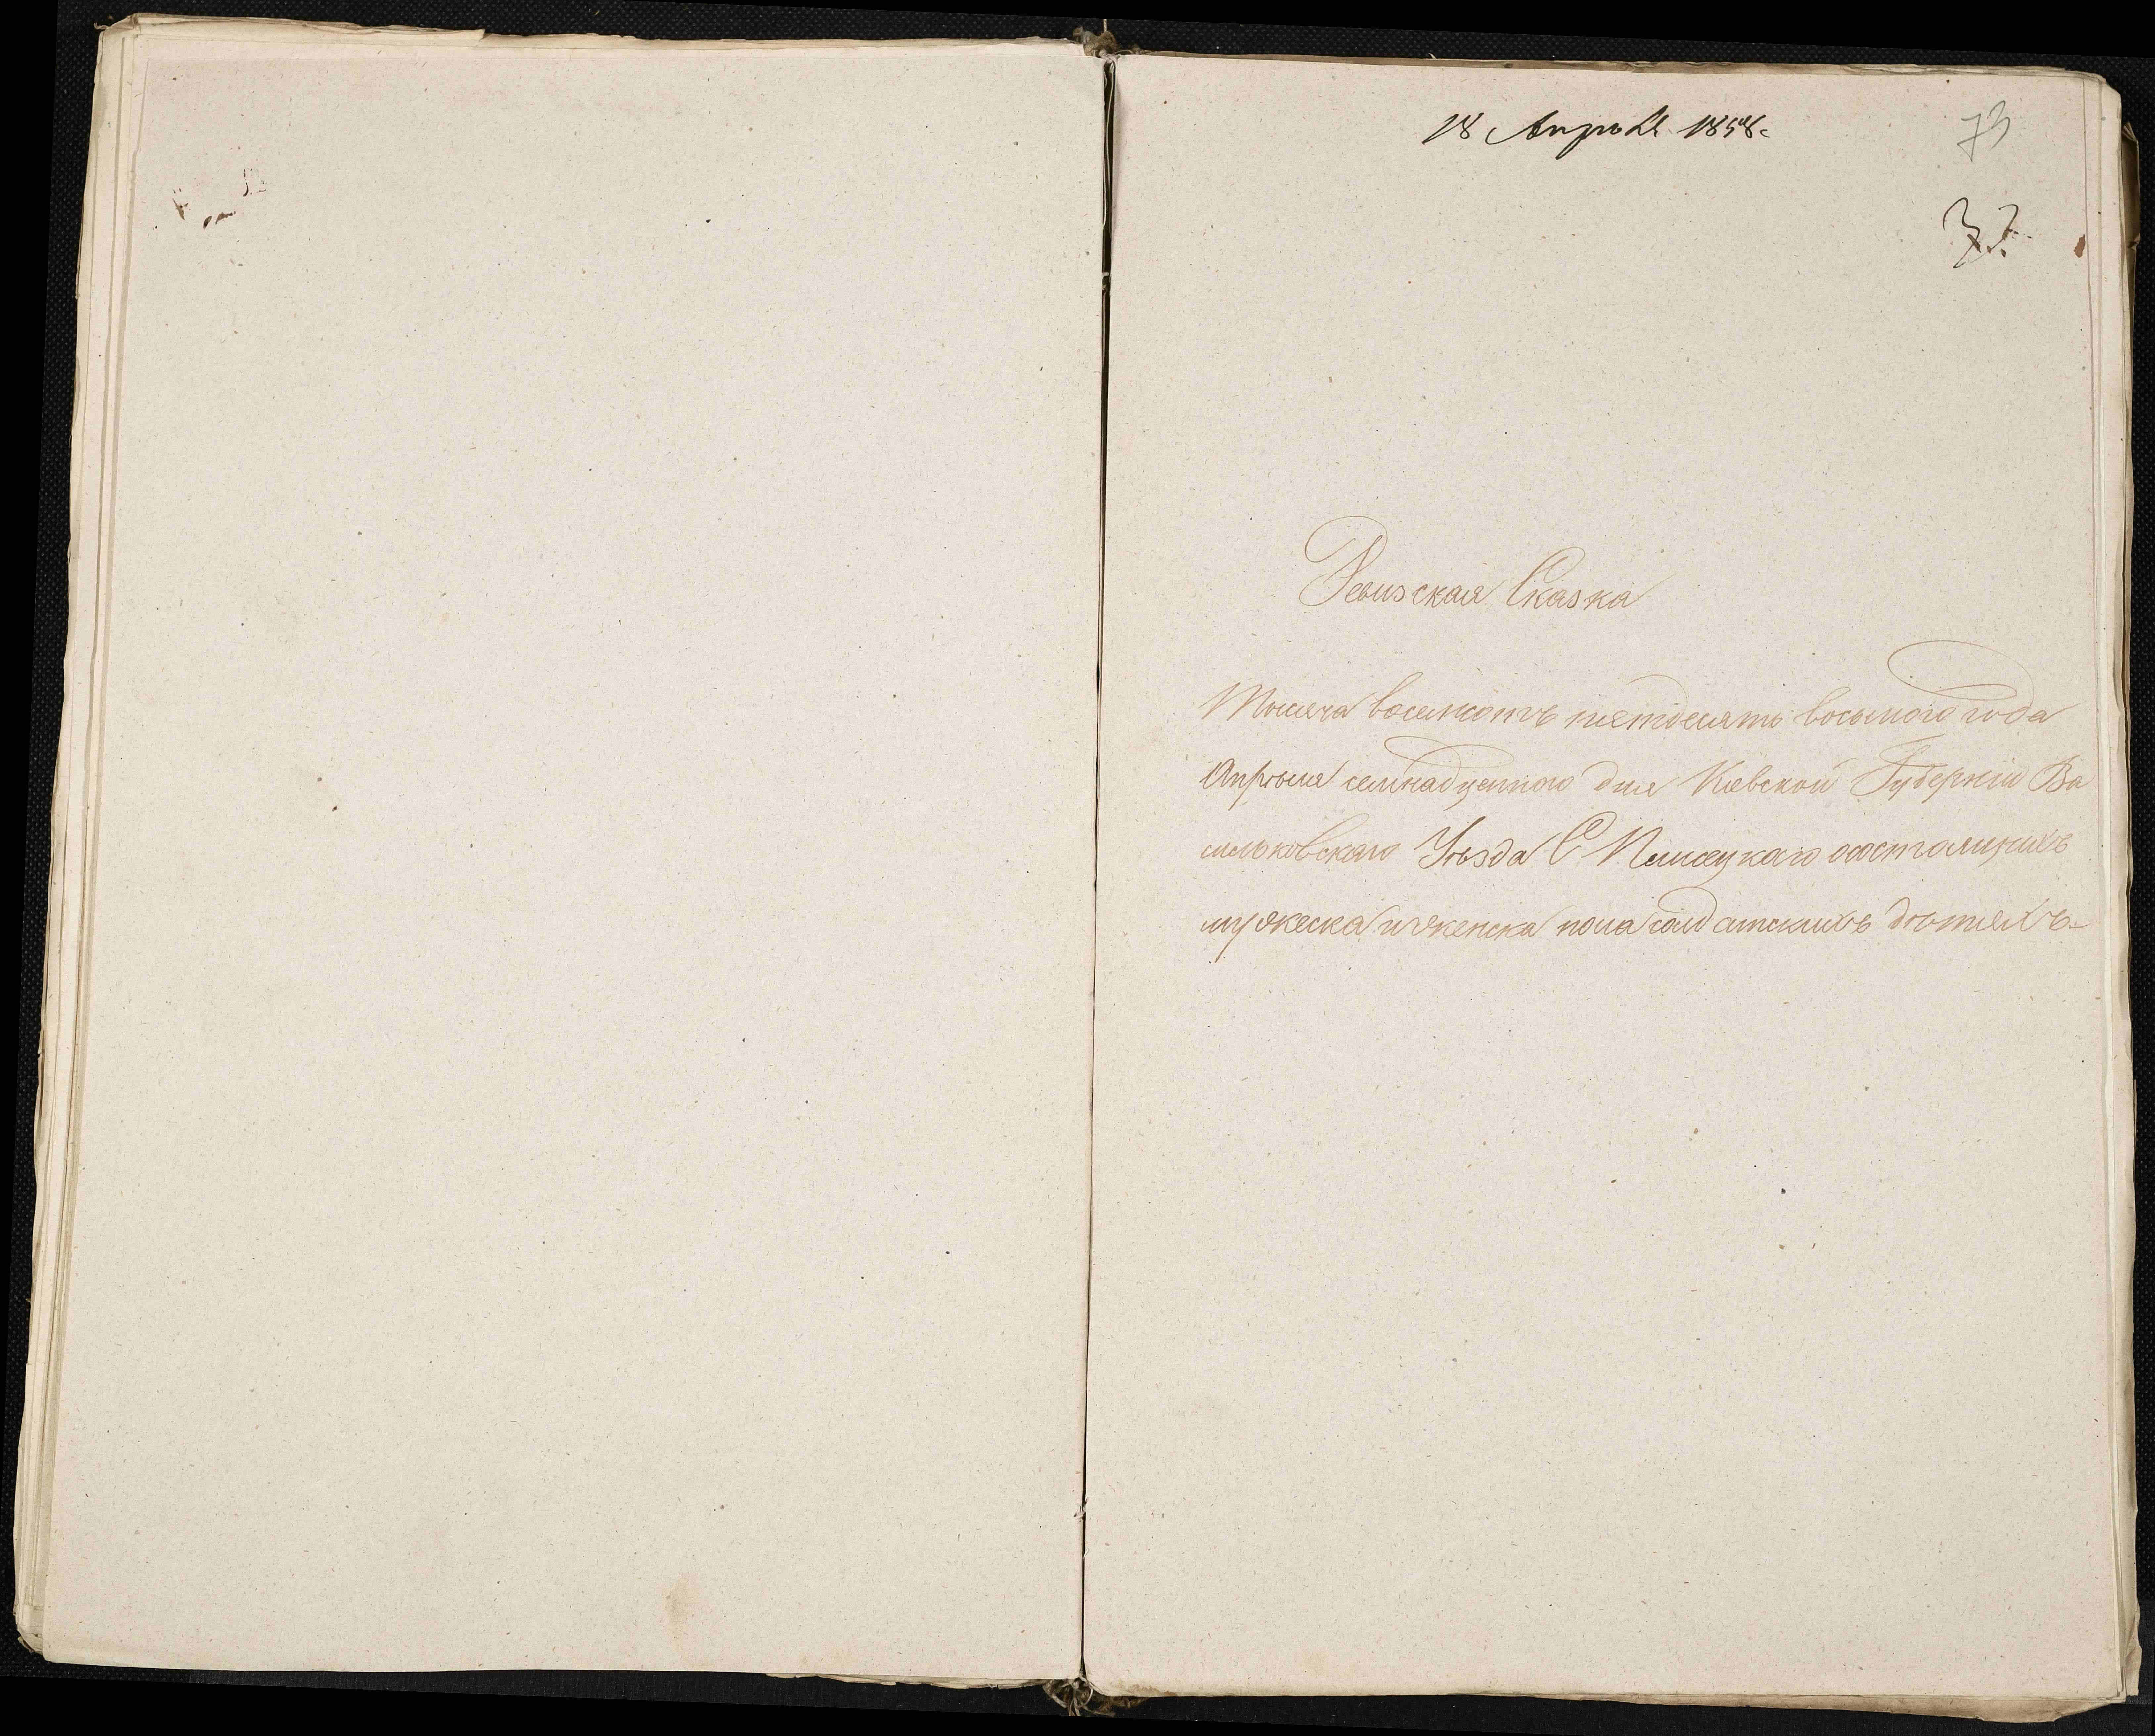 18 Апрѣля 1858 г.
73
Ревизская Сказка
Тысяча восемсотъ пятдесять восьмого года
Апрѣля семнадцетого дня Кіевской Губерніи Ва
сильковскаго Уѣзда С о состоящихъ
мужеска и женска пола солдатскихъ дѣтяхъ